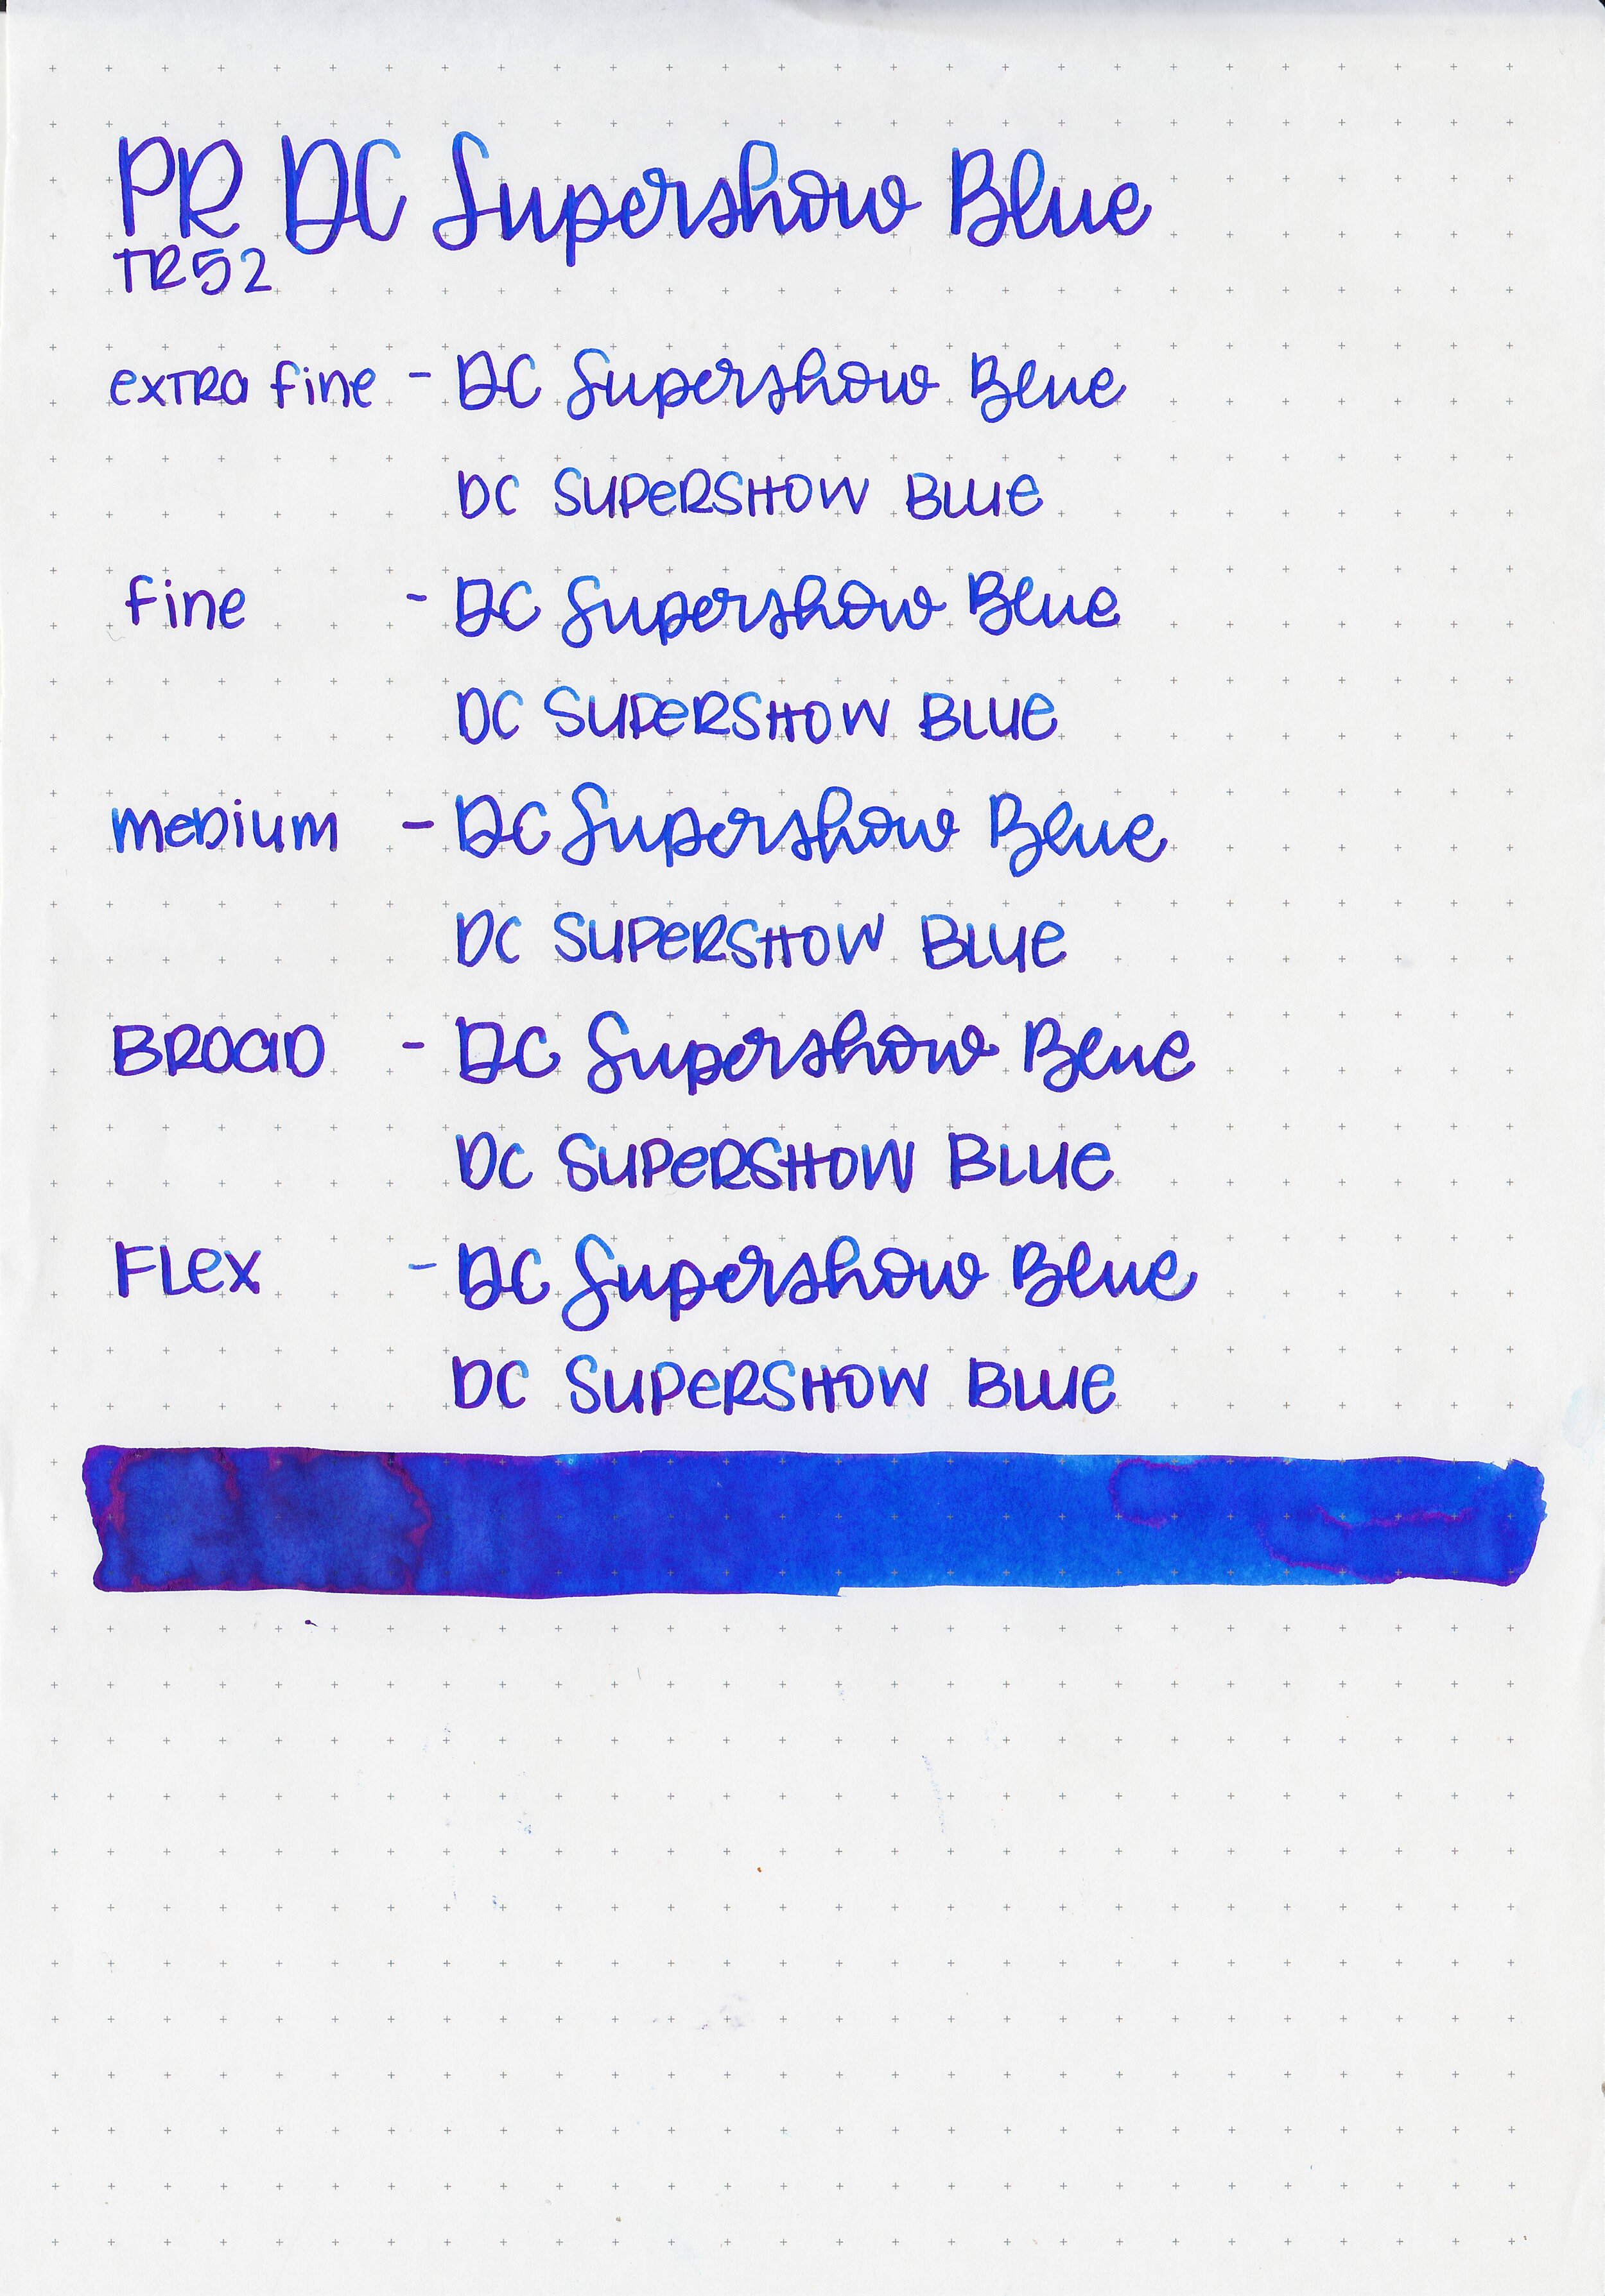 PR DC Supershow Blue
TR52
extra fine - DC Supershow Blue
DC SUPERSHOW BLUE
fine - DC Supershow Blue
DC SUPERSHOW BLUE
medium - DC Supershow Blue
DC SUPERSHOW BLUE
BROAD - DC Supershow Blue
DC SUPERSHOW BLUE
FLEX - DC Supershow Blue
DC SUPERSHOW BLUE